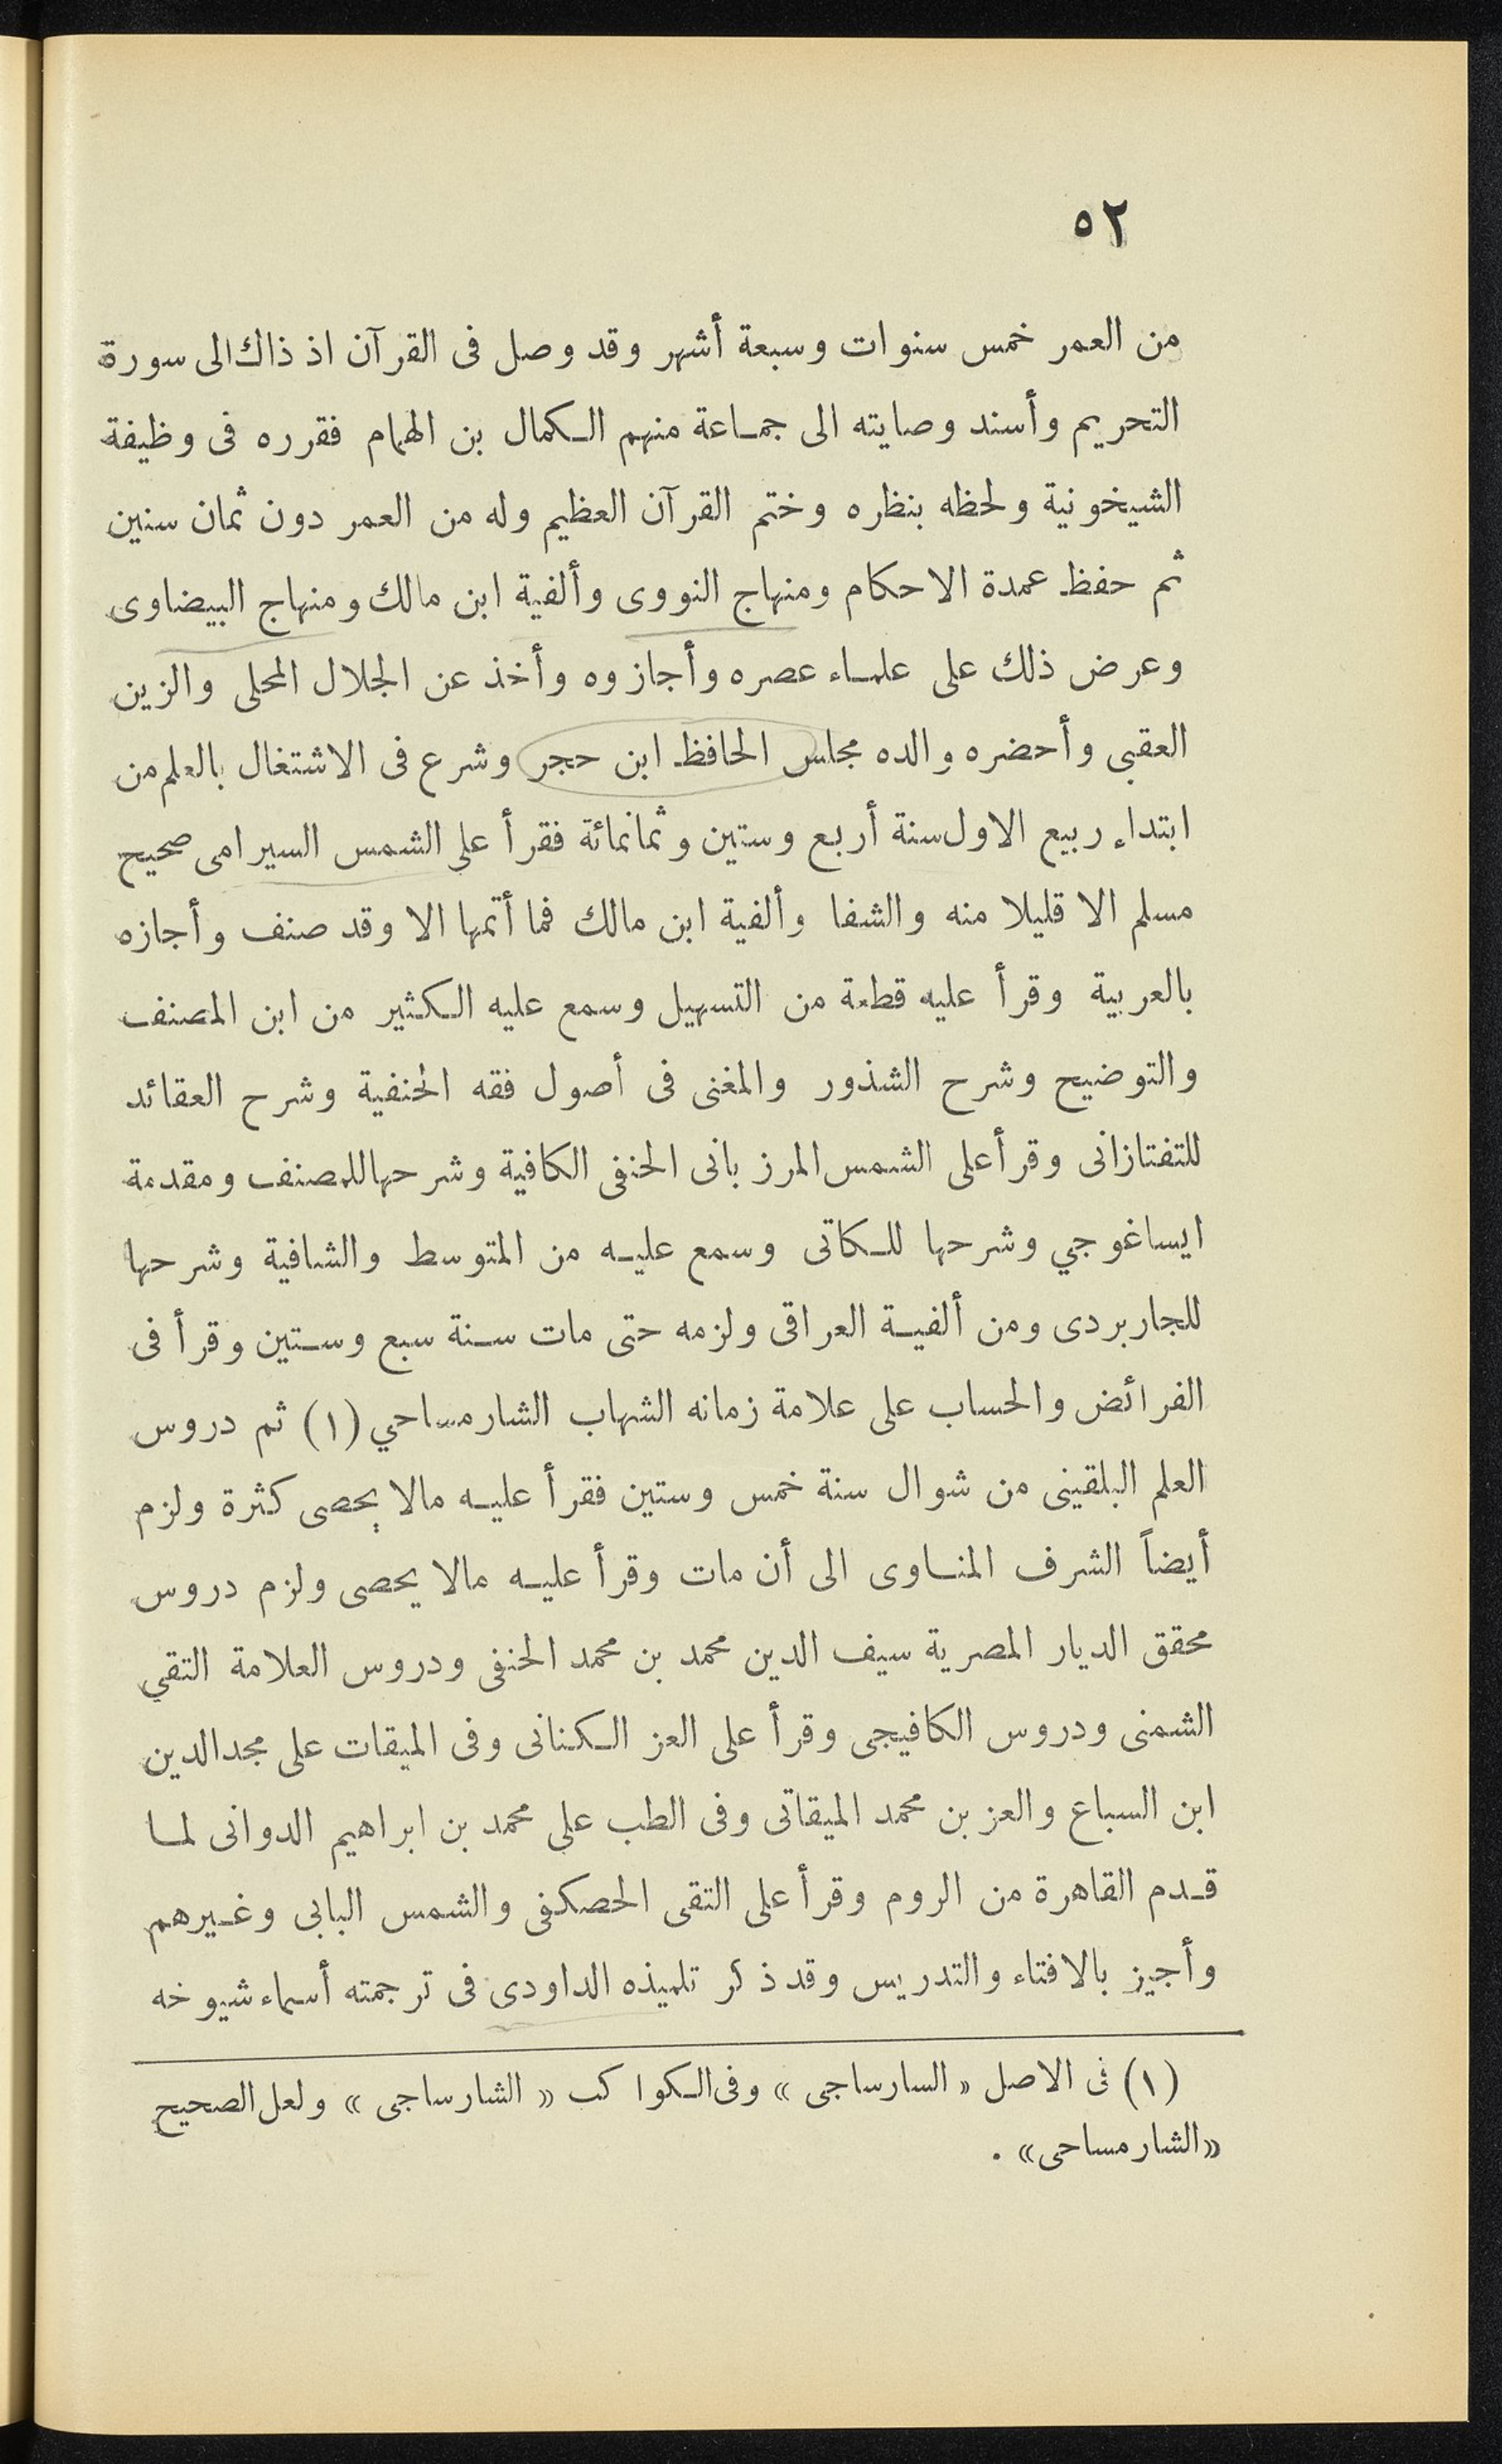 ٥٢
من العمر خمس سنوات وسبعة أشهر وقد وصل فى القرآن اذ ذاك الى سورة
التحريم وأسند وصايته الى جماعة منهم الكمال بن الهمام فقرره فى وظيفة
الشيخونية ولحظه بنظره وختم القرآن العظيم وله من العمر دون ثمان سنين
ثم حفظ عمدة الاحكام ومنهاج النووى وألفية ابن مالك ومنهاج البيضاوى
وعرض ذلك على علماء عصره وأجازوه وأخذ عن الجلال المحلى والزين
العقبى وأحضره والده مجلس الحافظ ابن حجر وشرع فى الاشتغال بالعلم من
ابتداء ربيع الاول سنة أربع وستين وثمانمائة فقرأ على الشمس السيرامى صحيح
مسلم الا قليلا منه والشفا وألفية ابن مالك فما أتمها الا وقد صنف وأجازه
بالعربية وقرأ عليه قطعة من التسهيل وسمع عليه الكثير من ابن المصنف
والتوضيح وشرح الشذور والمغنى فى أصول فقه الحنفية وشرح العقائد
للتفتازانى وقرأ على الشمس المرزبانى الحنفى الكافية وشرحها للمصنف ومقدمة
ايساغوجي وشرحها للكاتى وسمع عليه من المتوسط والشافية وشرحها
للجاربردى ومن ألفية العراقى ولزمه حتى مات سنة سبع وستين وقرأ فى
الفرائض والحساب على علامة زمانه الشهاب الشارمساحي (١) ثم دروس
العلم البلقينى من شوال سنة خمس وستين فقرأ عليه مالا يحصى كثرة ولزم
أيضاً الشرف المناوى الى أن مات وقرأ عليه مالا يحصى ولزم دروس
محقق الديار المصرية سيف الدين محمد بن محمد الحنفى ودروس العلامة التقي
الشمنى ودروس الكافيجى وقرأ على العز الكنانى وفى الميقات على مجد الدين
ابن السباع والعز بن محمد الميقاتى وفى الطب على محمد بن ابراهيم الدوانى لما
قدم القاهرة من الروم وقرأ على التقى الحصكفى والشمس البابى وغيرهم
وأجيز بالافتاء والتدريس وقد ذكر تلميذه الداودى فى ترجمته أسماء شيوخه
(١) فى الاصل « السارساجى » وفى الكواكب « الشارساجى » ولعل الصحيح
«الشارمساحى» .